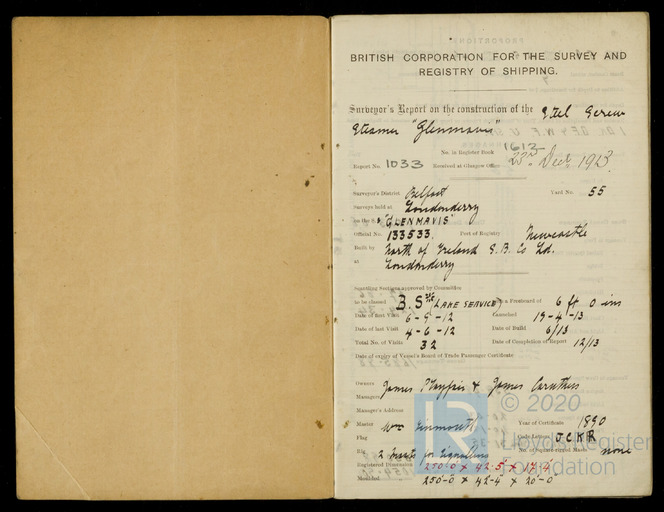 BRITISH CORPORATION FOR THE SURVEY AND
REGISTRY OF SHIPPING.
Surveyor's Report on the construction of the Steel Screw
Steamer "Glenmavis"
No. in Register Book 1613
Report No. 1033 Received at Glasgow Office 23rd Decr. 1913
Surveyor's District Belfast Yard No. 55
Surveys held at Londonderry
on the S.S. "GLENMAVIS"
Official No. 133533. Port of Registry Newcastle
Built by North of Ireland S.B. Co Ld.
at Londonderry
Scantling Sections approved by Committee
to be classed B.S* (LAKE SERVICE) with a Freeboard of 6 ft 0 ins
Date of first Visit 6-9-12 Launched 19-4-13
Date of last Visit 4-6-12 Date of Build 6/13
Total No. of Visits 32 Date of Completion of Report 12/13
Date of expiry of Vessel's Board of Trade Passenger Certificate
Owners James Playfair & James Carruthers
Managers
Manager's Address
Master Wm Year of Certificate 1890
Flag Code Letters JCKR
Rig 2 masts for signalling No. of Square-rigged Masts none
Registered Dimensions 250·0 × 42·5 × 17·4
Moulded 250-0 × 42-4 × 20-0
© 2020
Lloyd's Register
Foundation
LR